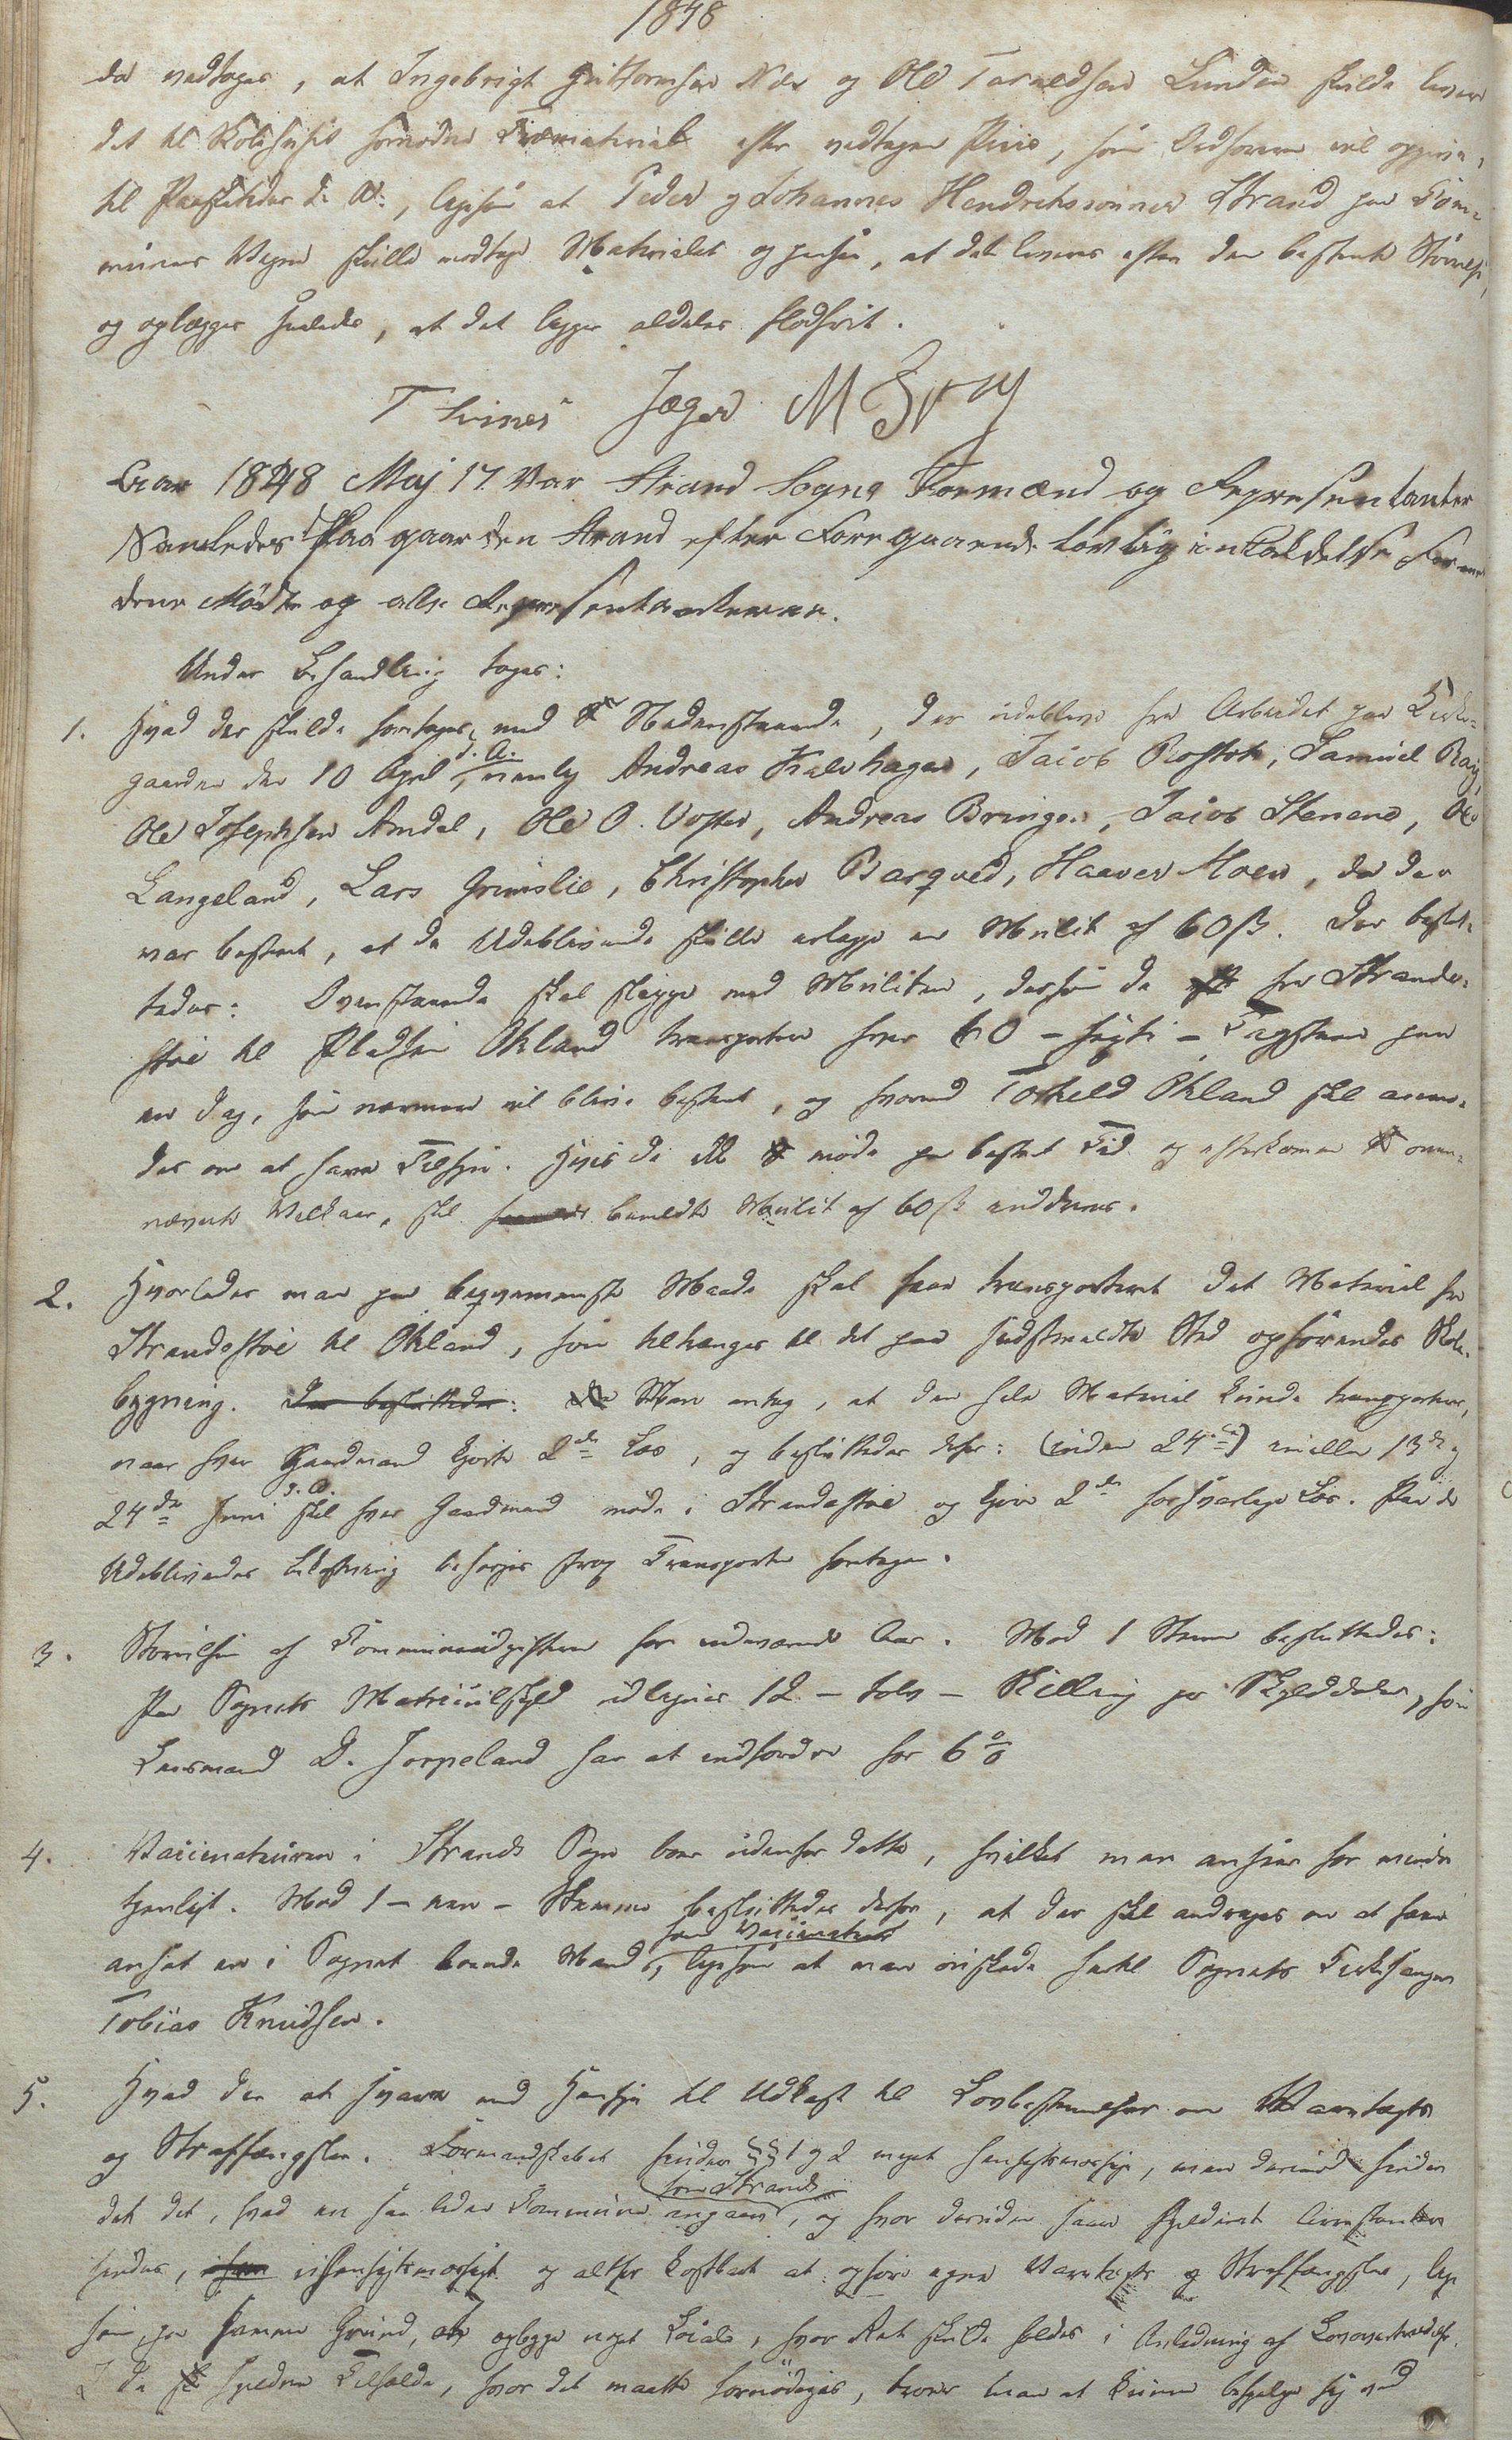 1848
da vedtoges, at Ingebrigt Guttormsen Næs og Ole Taraldsen Lunden skulde levere
det til Skolehuset fornødne Træmateriale efter vedtagen Priis, som Ordføreren vil opgive
til Præstitider d. A., ligesom at Peder og Johannes Hendrikssønner Strand paa Com-
munens Vegne skulle modtage Materialet og paasee, at det leveres efter den bestemte Størrelse,
og oplægges saaledes, at det ligger aldeles flodfrit.
T Svines Jæger M
Aar 1848 Maj 17 Var Strand Sogns Formænd og Representanter
Samledes Paa gaarden Strand efter Forregaaende Lovlig intkaldelse Formæn
dene Mødte og alle Representanterne.
Under Behandling toges:
1. Hvad der skulde foretages med Nedenstaaende, der udebleve fra Arbeidet paa Kirke-
gaarden den 10 April d. A., nemlig Andreas Kalvhagen, Jacob Barstok, Samuel Bay,
Ole Josephsen Amdal, Ole O. Vostes, Andreas Bringen, Jacob Stenene, Ole
Langeland, Lars Grimslie, Christopher Barqved, Haaver Moen, da der
var bestemt, at de Udeblivende skulle erlægge en Mulkt af 60 ß. Der beslut-
tedes: Ovenstaaende skal slippe med Mulkten, dersom de fra Strande-
støe til Pladsen Økland transporterer hver 60 - sexti - Tagsteen paa
en Dag, som nærmere vil blive bestemt, og hvormed Torkeld Økland skal anmo-
des om at have Tilsyn. Hvis de ikke møde paa bestemt Tid og efterkomme oven-
nævnte Vilkaar, skal bemeldte Mulkt af 60 ß inddrives.
2. Hvorledes man paa beqvemmeste Maade skal faae transporteret det Material fra
Strandestøe til Økland, som tiltrænges til det paa sidstmeldte Sted opførendes Skole-
bygning. Der besluttedes: Man antog, at den hele Material kunde transporteres,
naar hver Gaardmand kjørte 2de Læs, og besluttedes derfor: (inden 24de) mellem 13de og
24de Juni d. A. skal hver Gaardmand møde i Strandestøe og kjøre 2de forsvarlige Læs. Paa de
Udeblivendes Bekostning besørges strax Transporten foretagen.
3. Størrelsen af Communeudgifterne for indeværende Aar. Mod 1 Stemme besluttedes:
Paa Sognets Matriculskyld udlignes 12 - tolv - Skilling pr Skylddaler, som
Lensmand D. Jørpeland har at indfordre for 6 %
4. Vaccinateuren i Strands Sogn boer udenfor dette, hvilket man ansaae for mindre
tjenligt. Mod 1 - een - Stemme besluttedes derfor, at der skal andrages om at faae
ansat en i Sognet boende Mand som Vaccinateur, ligesom at man ønskede hertil Sognets Kirkesanger
Tobias Knudsen.
5. Hvad der at svare med Hensyn til Udkast til Lovbestemmelser om Varetægts
og Straffængsler. Formandskabet finder §§ 1 og 2 meget hensigtsmæssige, men derimod finder
det det, hvad en saa liden Commune som Strands angaaer, og hvor desuden saare sjeldent Arrestanter
findes, uhensigtsmæssigt og altfor kostbart at opføre egne Varetægts og Straffængsler, lige
som, paa samme Grund, at opbygge noget Locale, hvor Ret skulde holdes i Anledning af Lovovertrædelser.
I de sjeldne Tilfælde, hvor det maatte fornødiges, troer man at kunne behjelpe sig ved